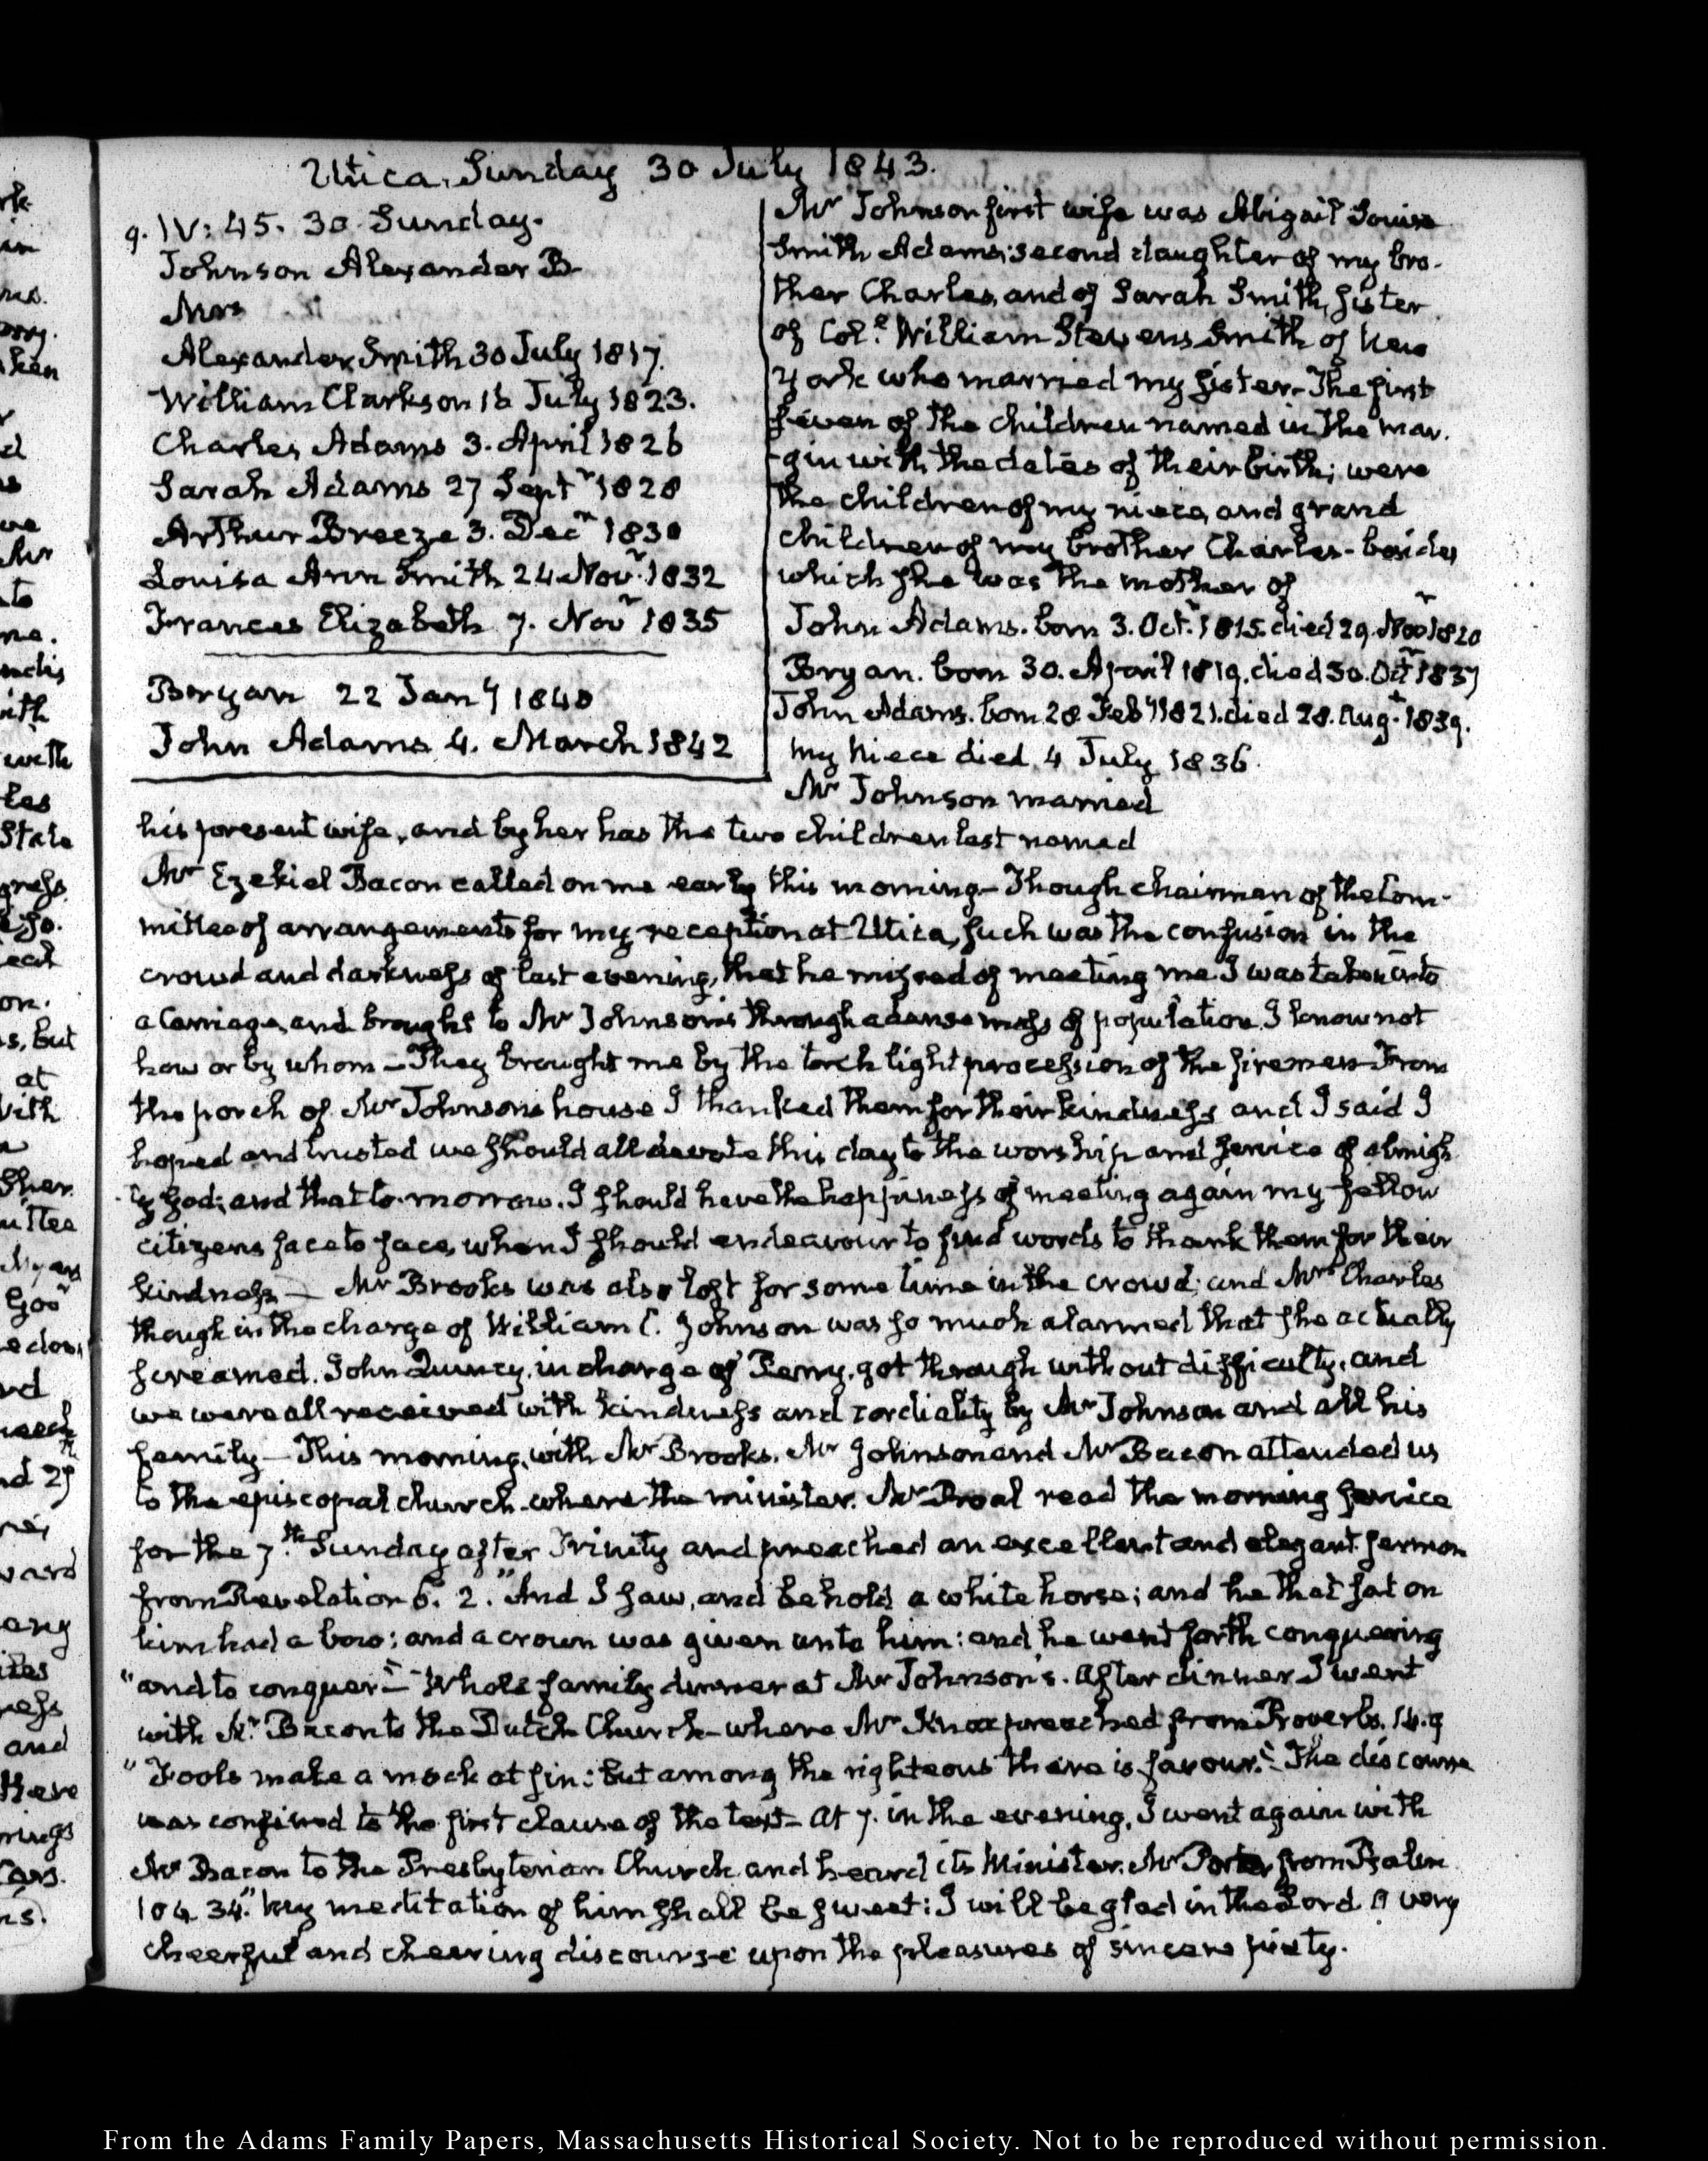 Utica, Sunday 30 July 1843.
9. IV: 45. 30. Sunday.
Johnson Alexander B
Mrs
Alexander Smith 30 July 1817.
William Clarkson 16 July 1823.
Charles Adams 3. April 1826
Sarah Adams 27 Septr 1828
Arthur Breeze 3. Decr 1830
Louisa Ann Smith 24 Novr. 1832
Frances Elizabeth 7. Novr 1835
Bryan 22 Jany 1840
John Adams 4. March 1842
Mr Johnson first wife was Abigail Louisa
Smith Adams, second daughter of my bro-
ther Charles, and of Sarah Smith, sister
of Coll. William Stevens Smith of New
York who married my sister- The first
seven of the children named in the mar-
gin with the dates of their birth; were
the children of my niece, and grand
children of my brother Charles- besides
which she was the mother of
John Adams. born 3. Octr. 1815. died 29. Novr 1820
Bryan. born 30. April 1819. died 30. Octr 1837
John Adams. born 28 Feby 1821. died 28. Augt. 1839.
My Niece died 4 July 1836.
Mr Johnson married
his present wife, and by her has the two children last named
Mr Ezekiel Bacon called on me early this morning- Though chairman of the Com-
mittee of arrangements for my reception at Utica, such was the confusion in the
crowd and darkness of last evening, that he missed of meeting me. I was taken into
a Carriage, and brought to Mr Johnson's through a dense mass of population, I know not
how or by whom- They brought me by the torch light procession of the firemen- From
the porch of Mr Johnsons house I thanked them for their kindness and I said I
hoped and trusted we should all devote this day to the worship and service of almigh-
ty God; and that to-morrow. I should have the happiness of meeting again my fellow
citizens face to face, when I should endeavour to find words to thank them for their
kindness- Mr Brooks was also lost for some time in the crowd; and Mrs Charles
though in the charge of William C. Johnson was so much alarmed that she actually
screamed. John Quincy, in charge of Perry, got through without difficulty, and
we were all received with kindness and cordiality by Mr Johnson and all his
family- This morning, with Mr Brooks, Mr Johnson and Mr Bacon attended us
to the episcopal church where the minister, Mr Proal read the morning service
for the 7.th Sunday after Trinity and preached an excellent and elegant sermon
from Revelation 6. 2. "And I saw, and behold a white horse; and he that sat on
him had a bow; and a crown was given unto him: and he went forth conquering
"and to conquer"- Whole family dinner at Mr Johnson's. After dinner I went
with Mr. Bacon to the Dutch Church- where Mr Knox preached from Proverbs. 14. 9
"Fools make a mock at sin: but among the righteous there is favour." The discourse
was confined to the first clause of the text- At 7. in the evening, I went again with
Mr Bacon to the Presbyterian Church and heard its Minister. Mr from Psalm
104. 34. "My meditation of him shall be sweet: I will be glad in the Lord. A very
cheerful and cheering discourse upon the pleasures of sincere piety.
From the Adams Family Papers, Massachusetts Historical Society. Not to be reproduced without permission.